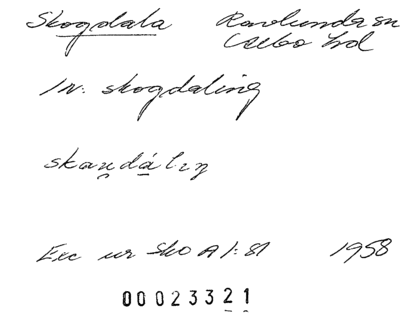 Skogdala Ravlunda sn
Albo hd
Inv. skogdaling
skaundáliŋ
Exc ur Sko A 1:81 1958
00023321